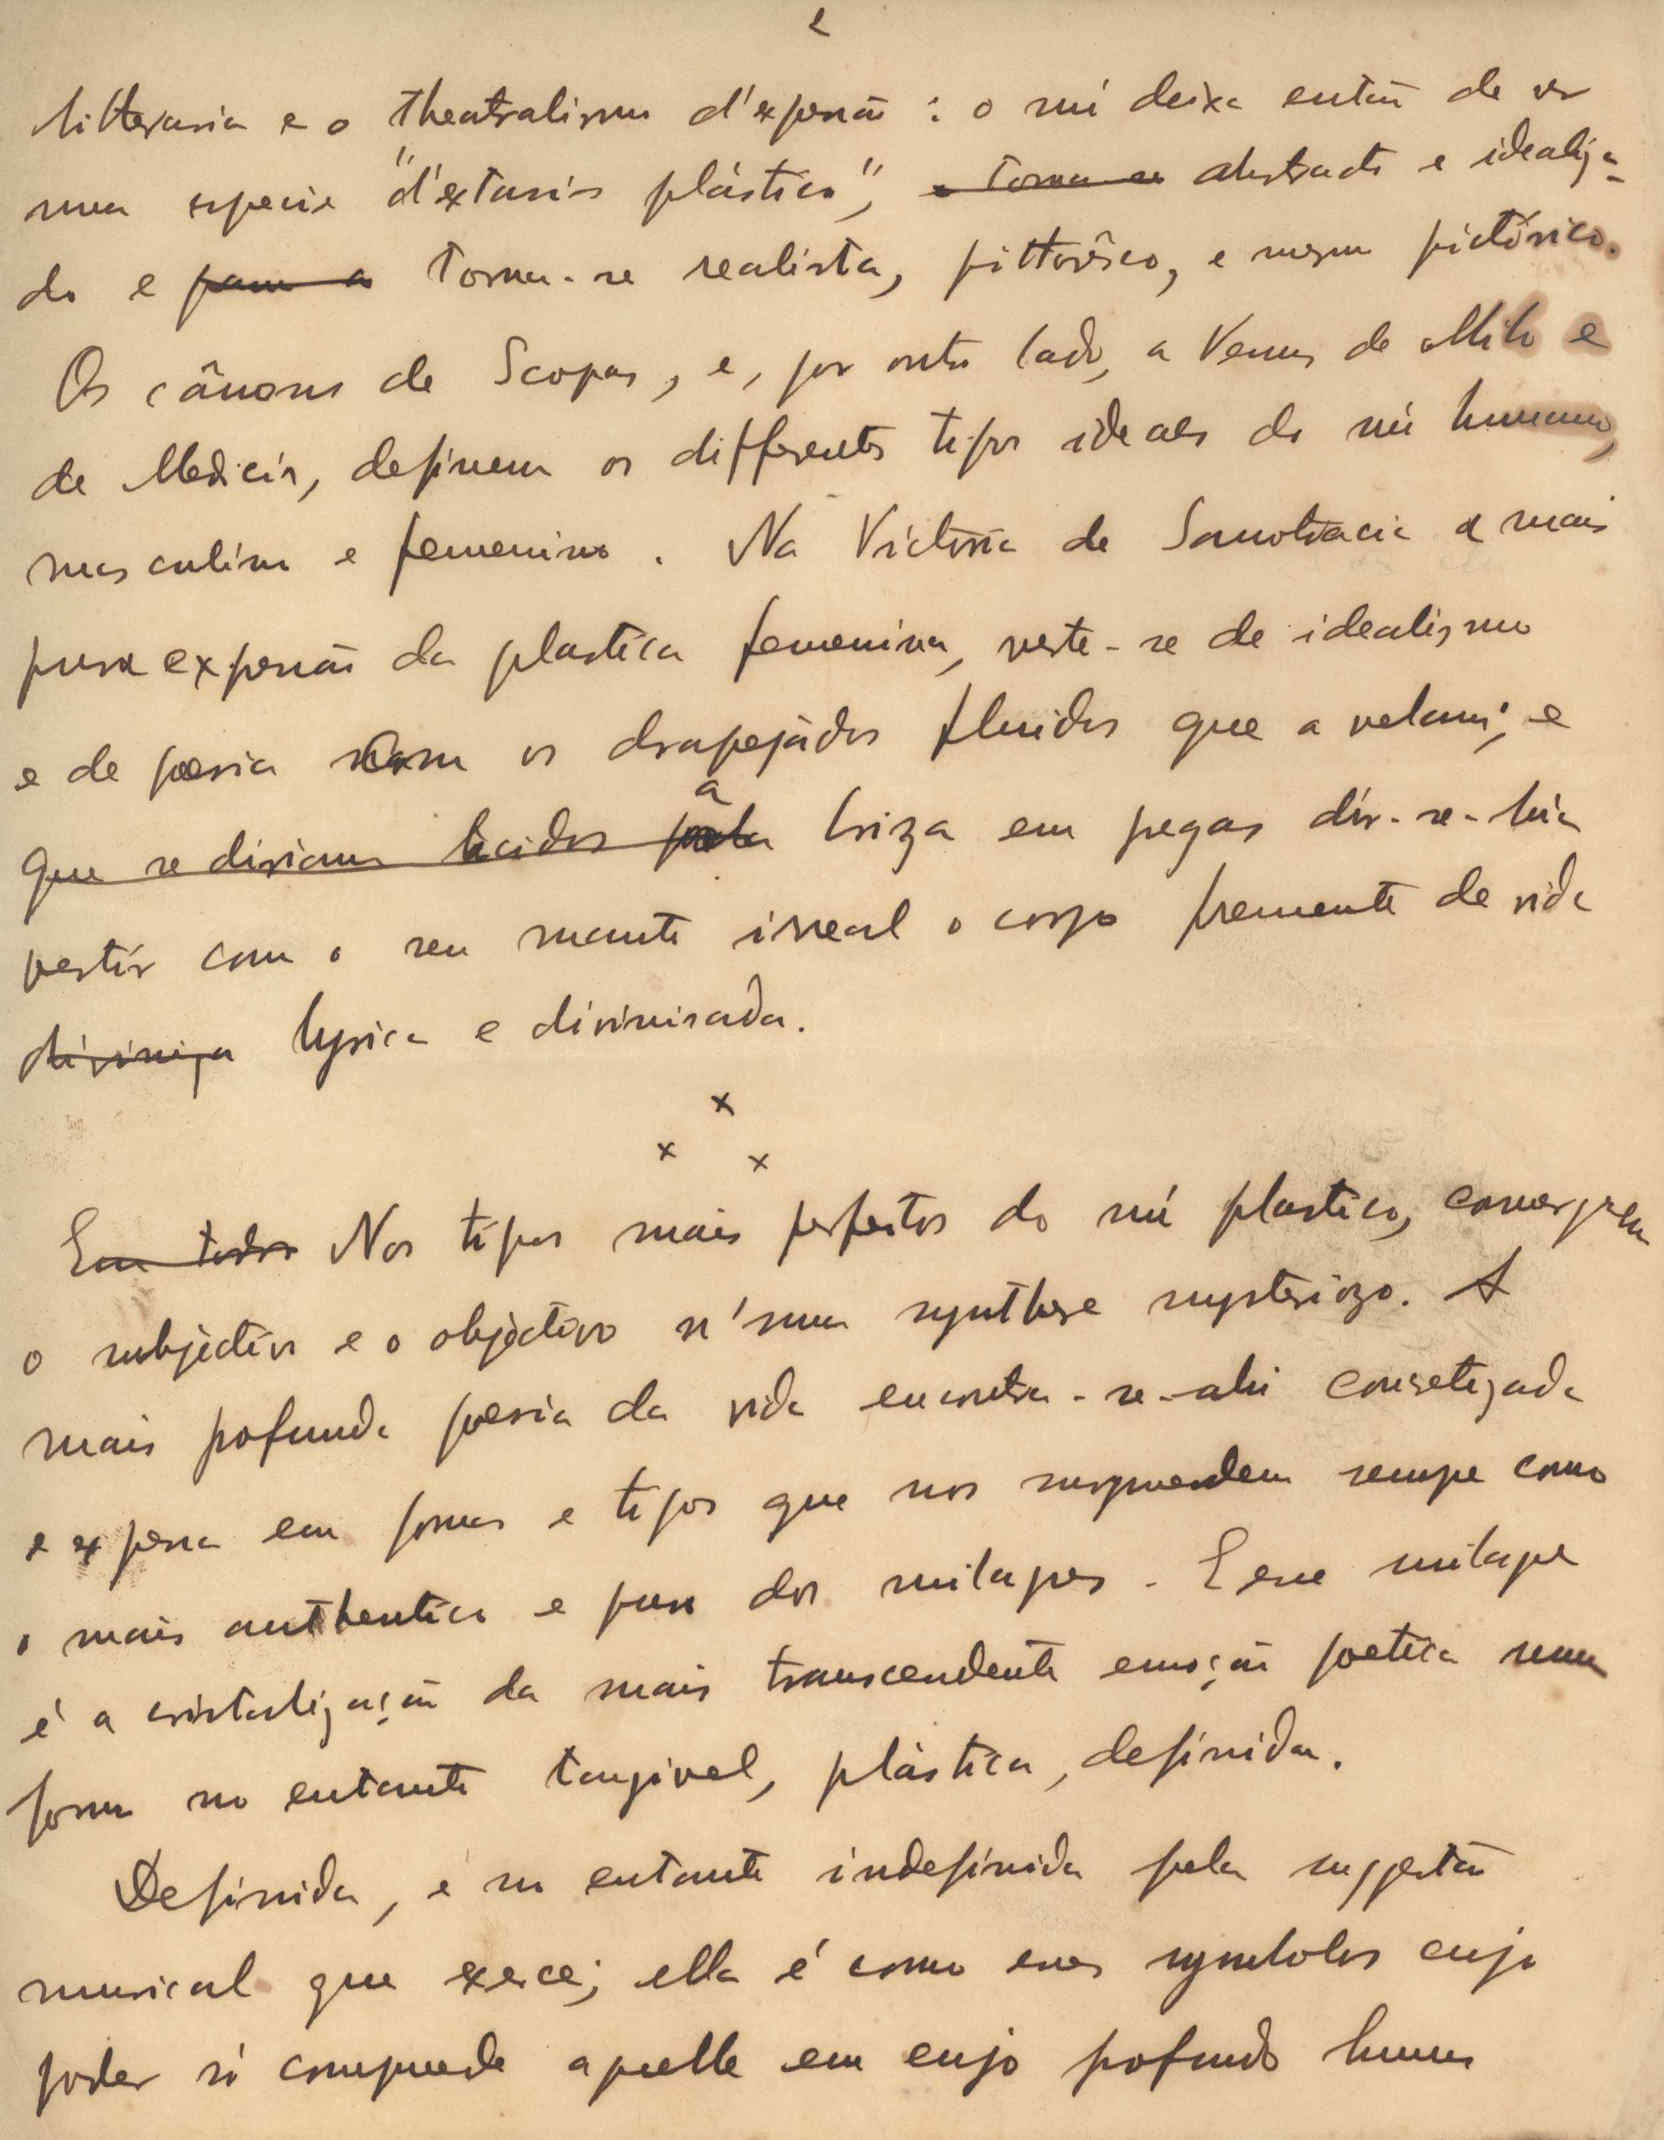 2
litteraria e o theatralismo d'expressão : o nú deixa então de ser
uma especie "d'extasis plástico", e torna-se abstracto e idealiza-
do e passa a torna-se realista, pittorêsco, e mesmo pictórico.
Os cânones de Scopas, e, por outro lado, a Venus de Milo e
de Medicis, definem os differentes tipos ideaes do nú humano,
masculino e femenino. Na Victória de Samotracia a mais
pura expressão da plastica femenina, veste-se de idealismo
e de poesia com os drapejádos fluidos que a velam; e
a
que se diriam tecidos pela briza em pregas dir-se-hia
vestir com o seu manto irreal o corpo fremente de vida
diviniza lyrica e divinisada.
x
x x
Em todos Nos tipos mais perfeitos do nú plastico, convergem
o subjectivo e o objectivo n'uma synthese mysterioza. A
mais profunda poesia da vida encontra-se-ahi concretizada
e expressa em formas e tipos que nos surprendem sempre como
o mais authentico e puro dos milagres. E esse milagre
é a cristalização da mais transcendente emoção poetica numa
forma no entanto tangivel, plástica, definida.
Definida, e no entanto indefinida pela suggestão
musical que exerce; ella é como esses symbolos cujo
poder só comprende aquelle em cujo profundo humus